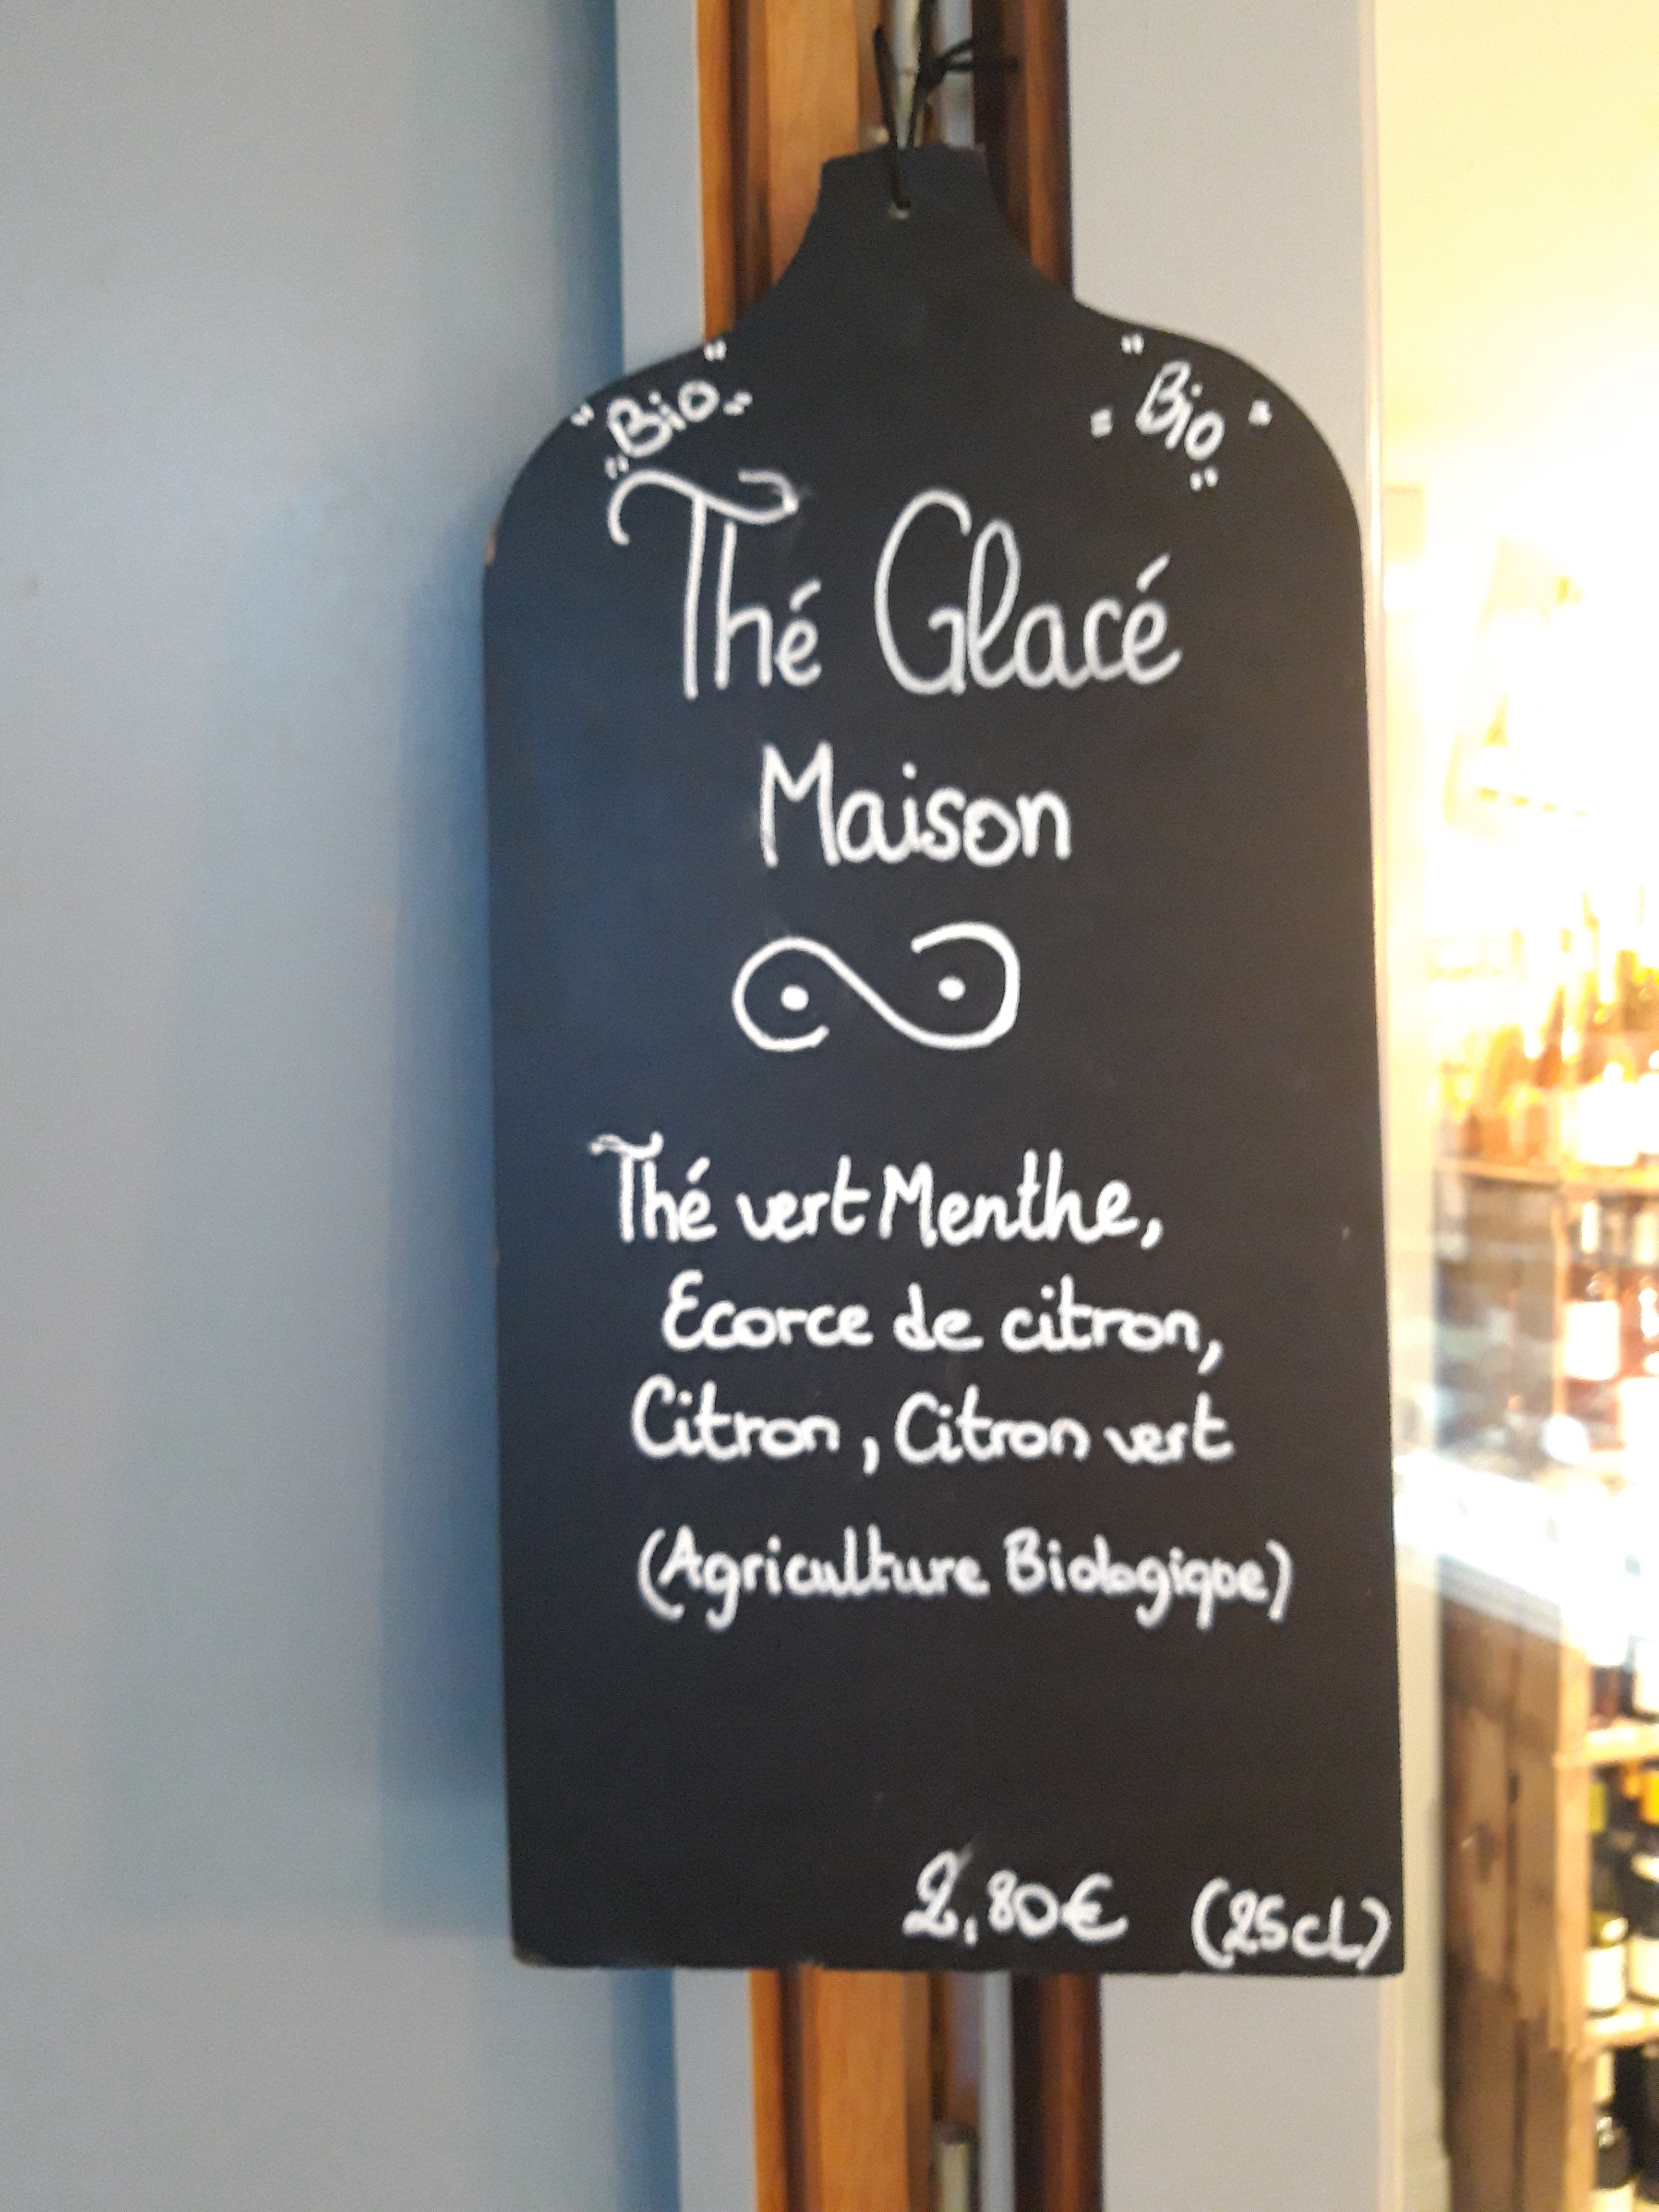 "Bio"
"Bio"
Thé Glacé
Maison
Thé vert Menthe,
Ecorce de citron,
Citron, Citron vert
(Agriculture Biologique)
2,80€ (25cL)